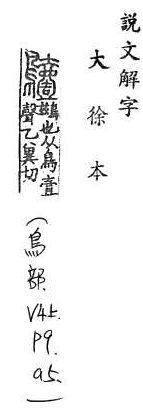 說文解字
大徐本
鷧鷀也从鳥壹
聲乙冀切
(鳥部. V4上. P9. a5.)